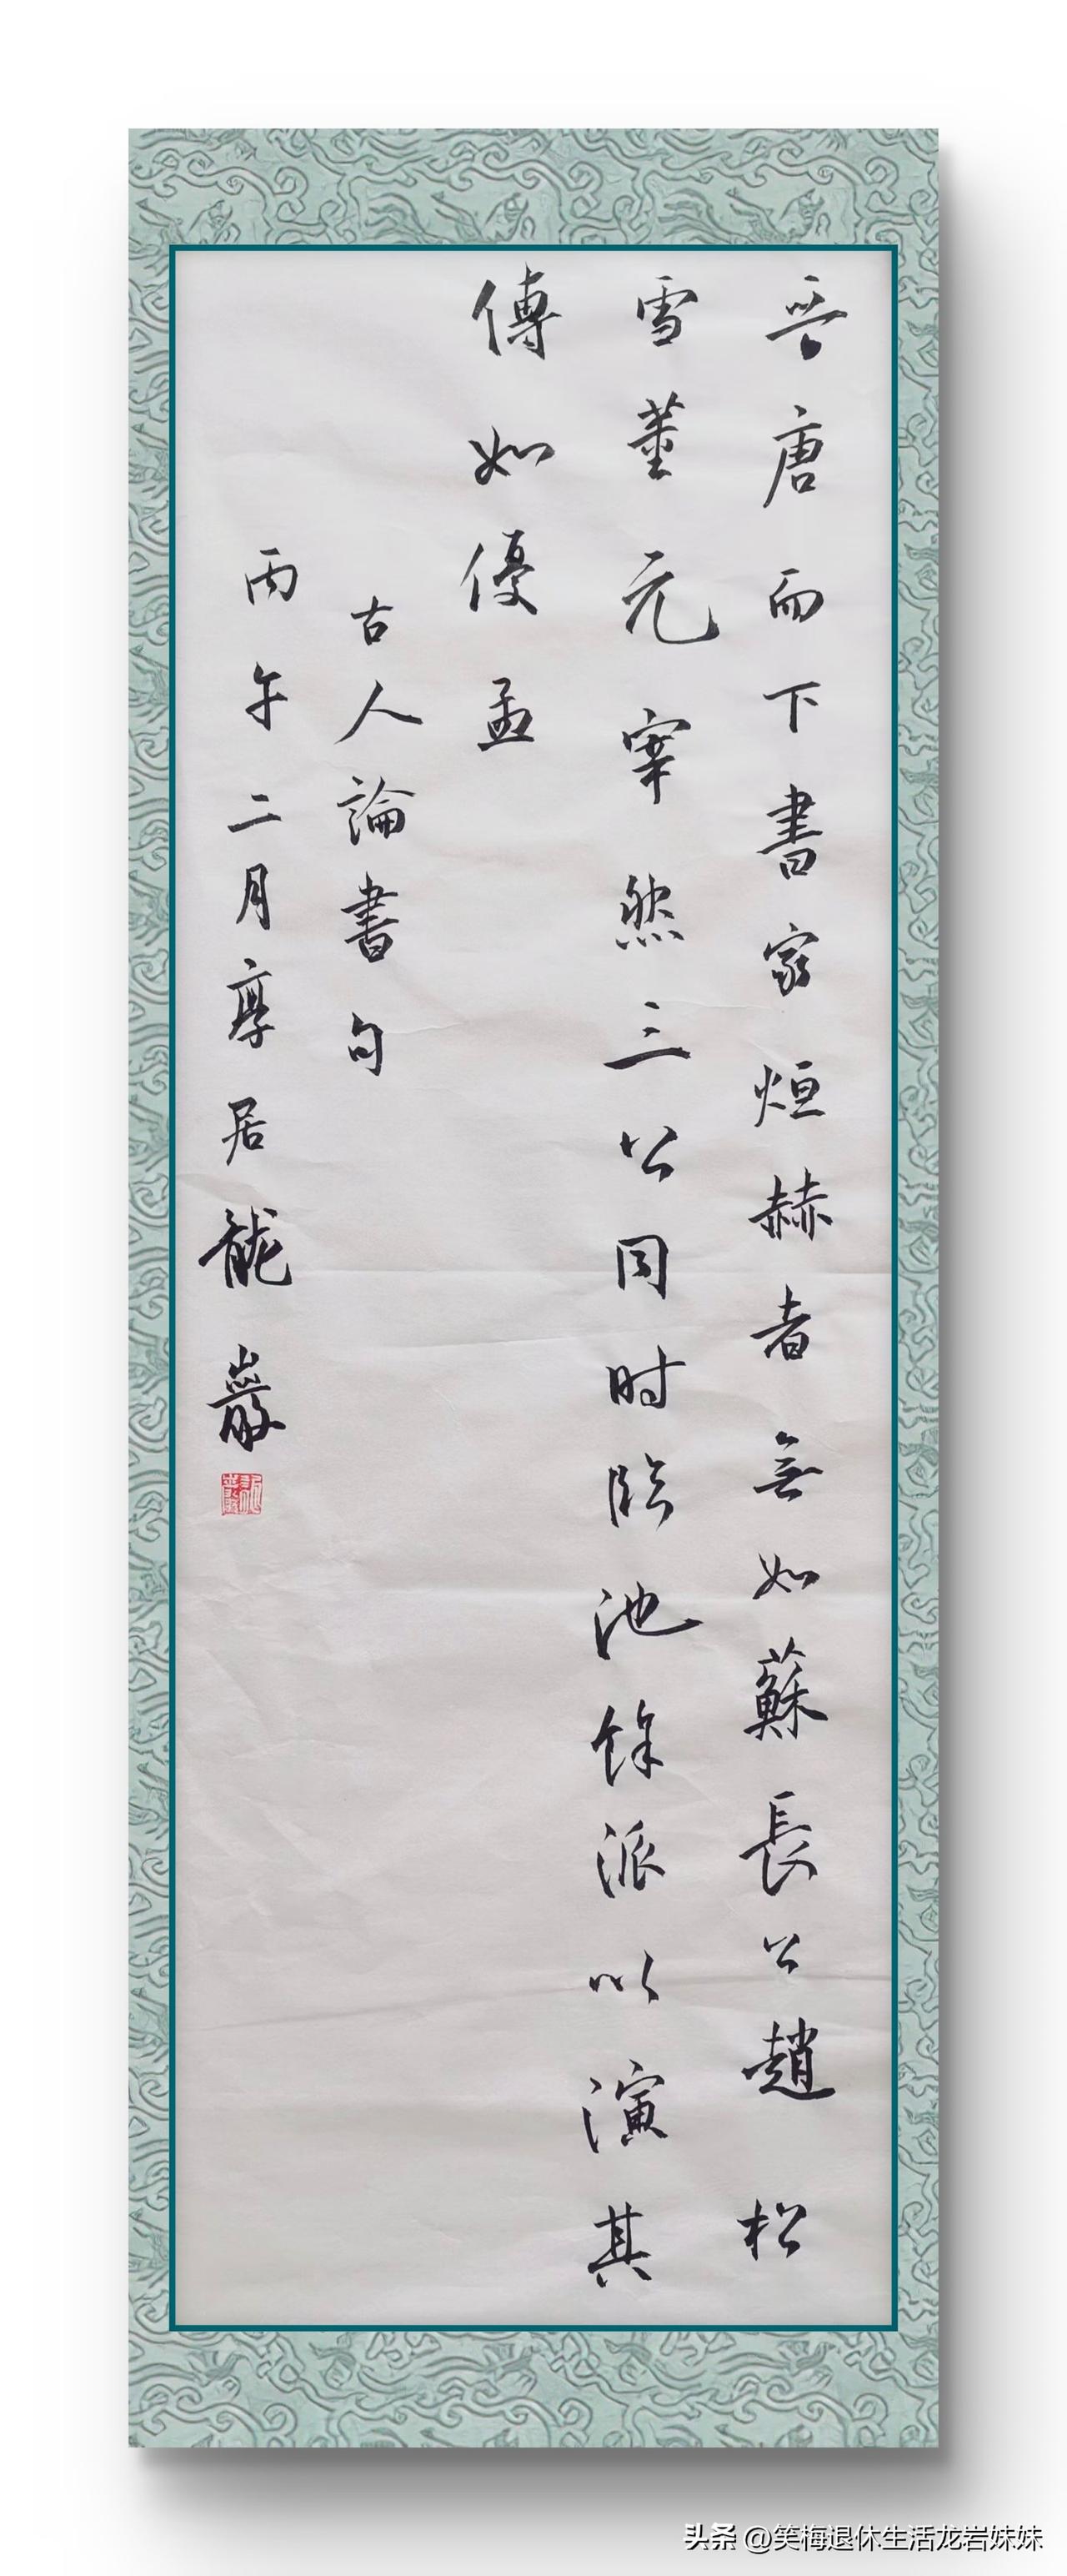 晉唐而下書家烜赫者無如蘇長公趙松
雪董元宰然三公同时臨池餘派以演其
傳如優孟
古人論書句
丙午二月厚居龍巖
头条 @笑梅退休生活龙岩妹妹